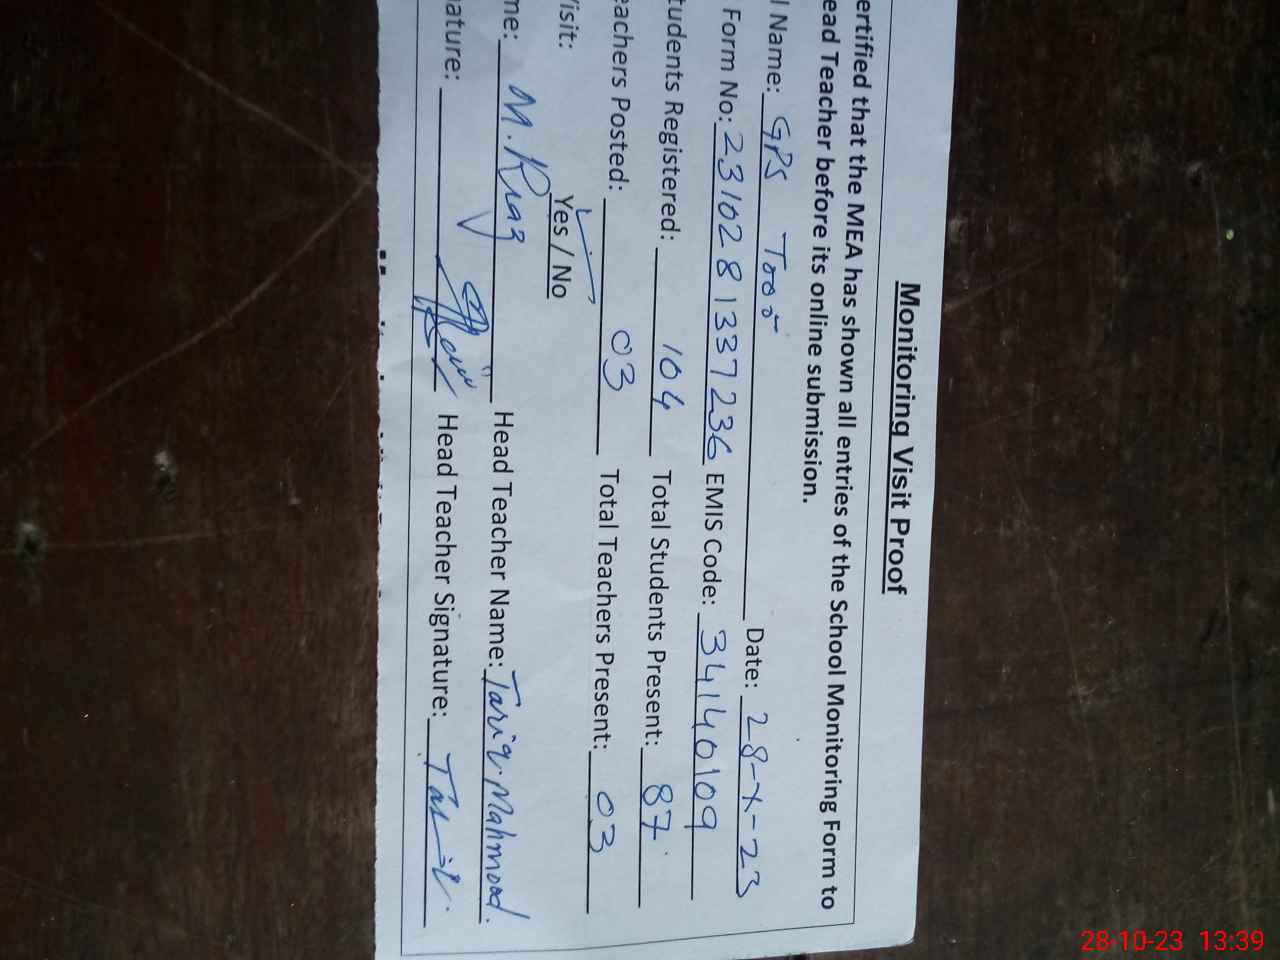 Monitoring Visit Proof
ertified that the MEA has shown all entries of the School Monitoring Form to
ead Teacher before its online submission.
l Name: GPS Toor Date: 28-X-23
Form No: 231028 1337236 EMIS Code: 34140109
tudents Registered: 104 Total Students Present: 87
eachers Posted: 03 Total Teachers Present: 03
isit: Yes / No
me: M. Riaz Head Teacher Name: Tariq Mahmood.
ature: Head Teacher Signature: Tariq
28-10-23 13:39